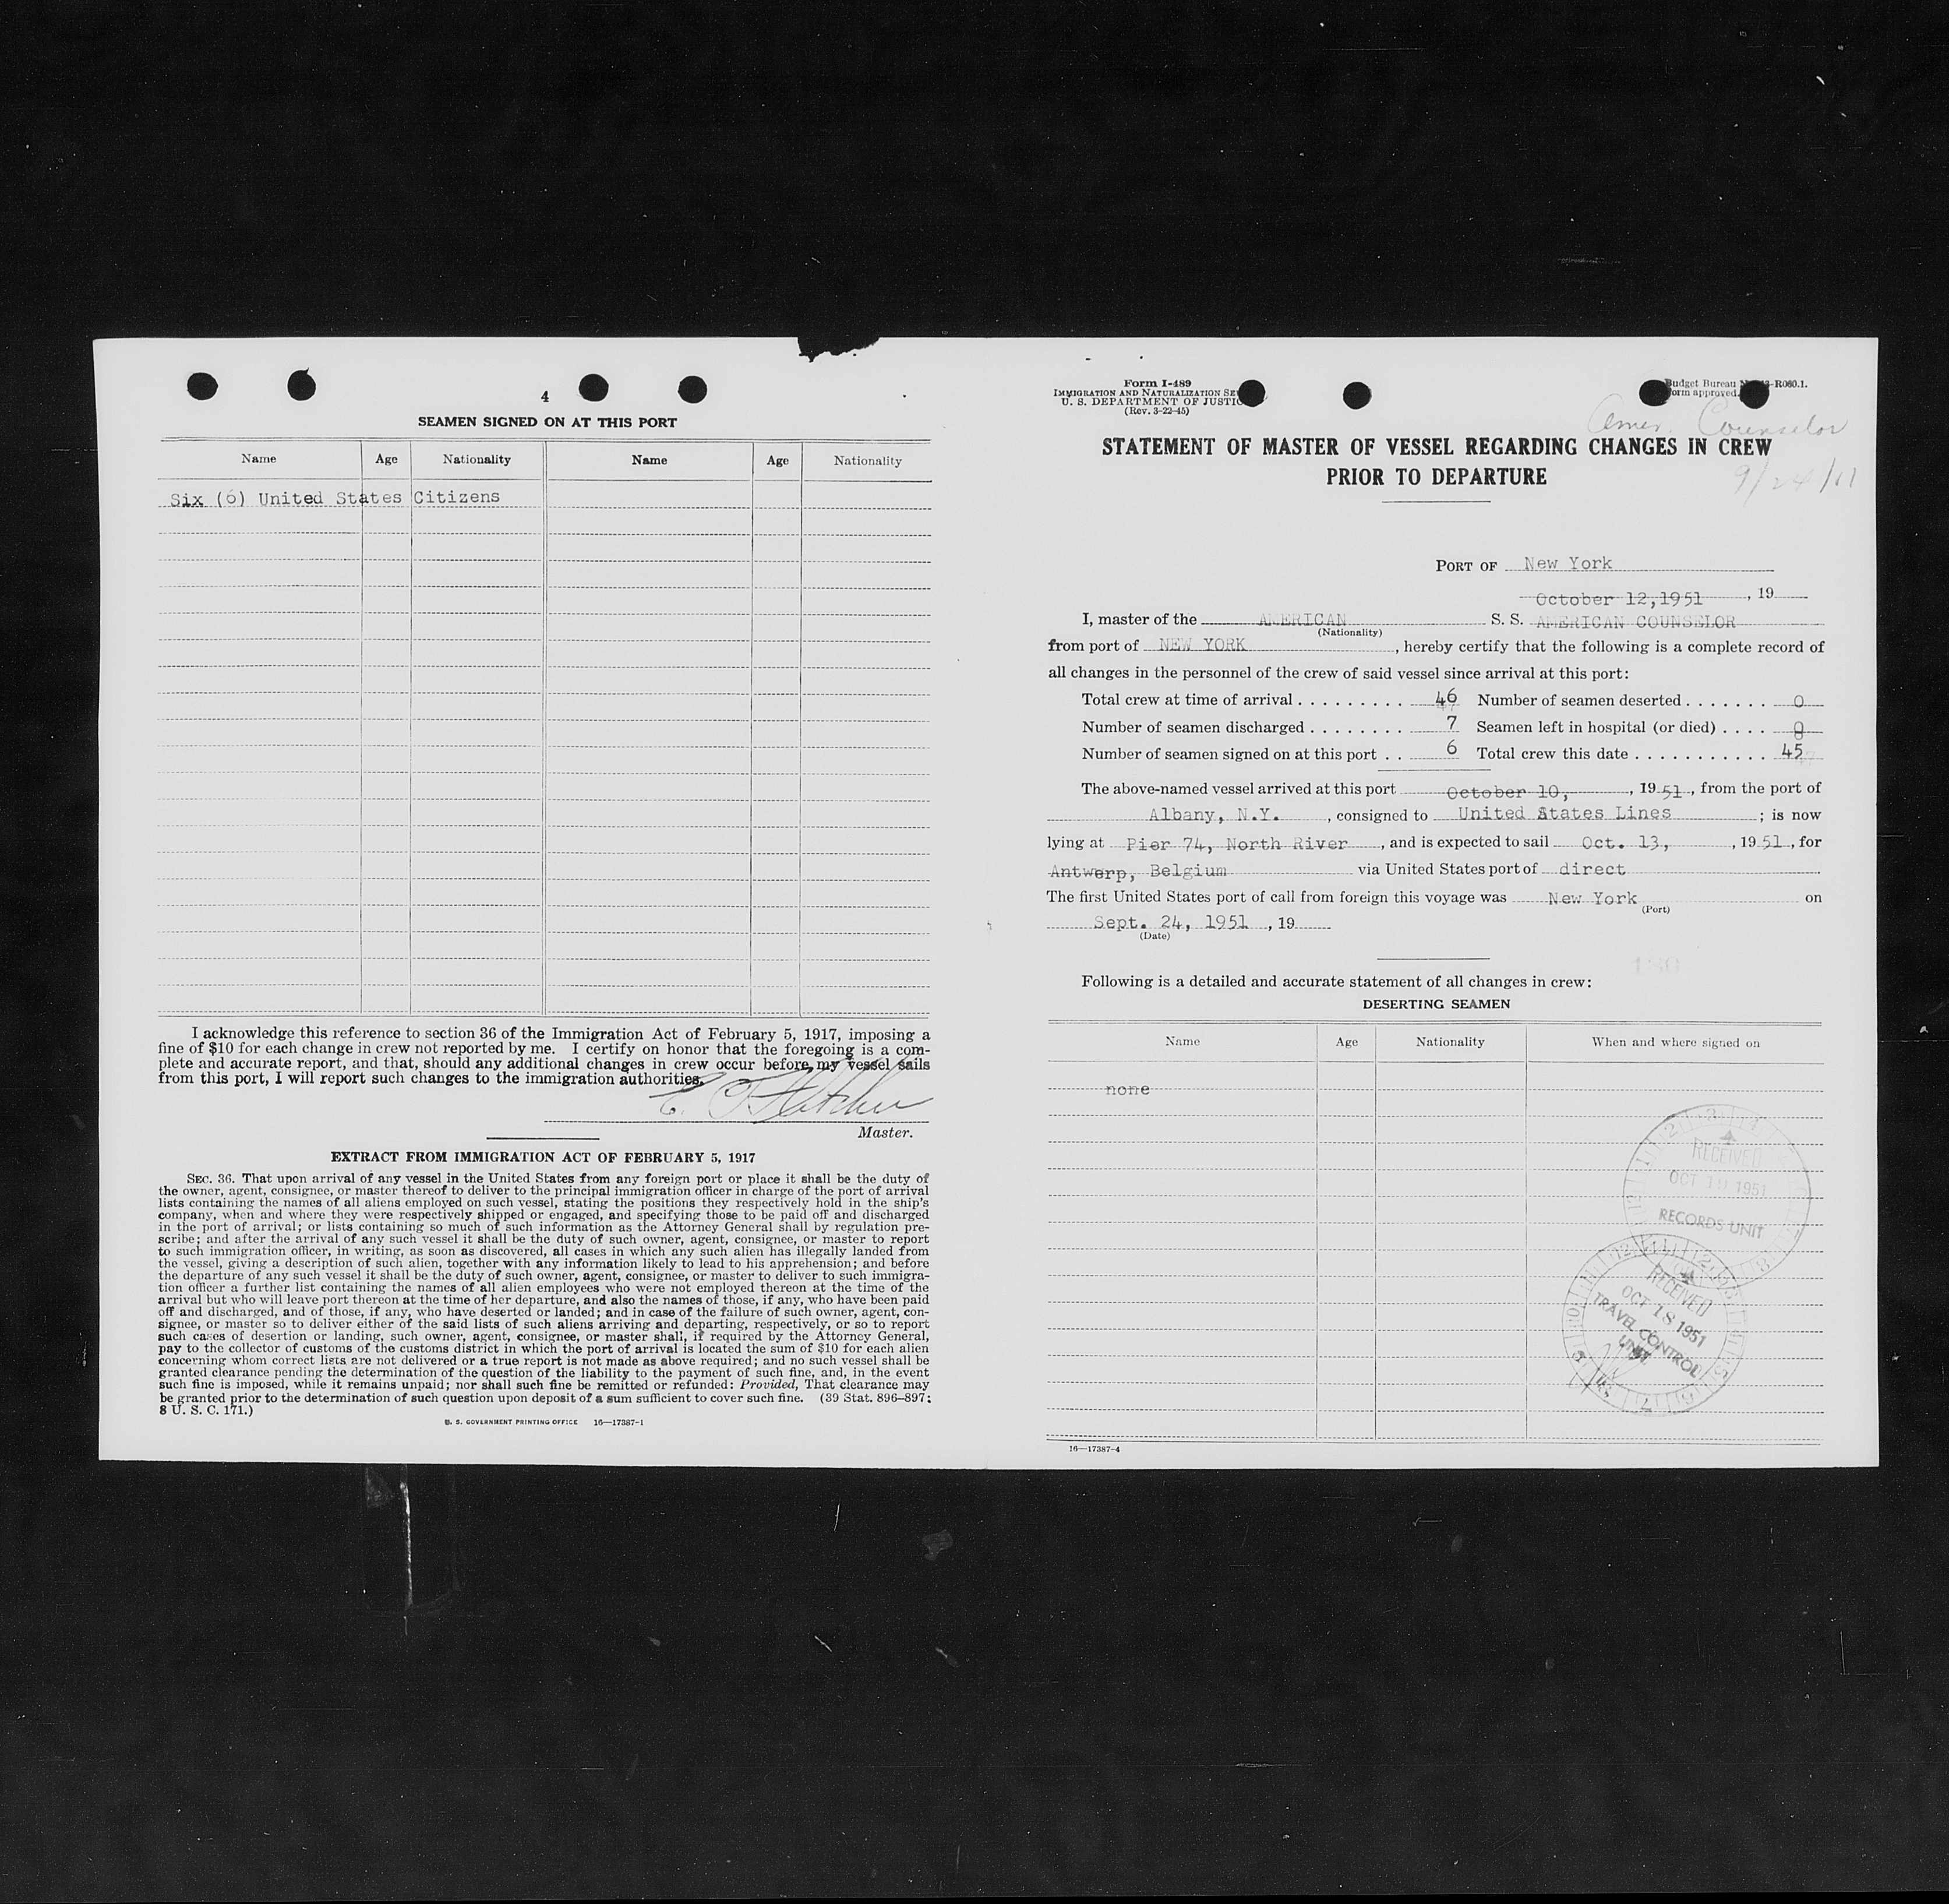 4
SEAMEN SIGNED ON AT THIS PORT
Name Age Nationality Name Age Nationality
Six (6) United States Citizens
I acknowledge this reference to section 36 of the Immigration Act of February 5, 1917, imposing a
fine of $10 for each change in crew not reported by me. I certify on honor that the foregoing is a com-
plete and accurate report, and that, should any additional changes in crew occur before my vessel sails
from this port, I will report such changes to the immigration authorities.
E. T. Fletcher
Master.
EXTRACT FROM IMMIGRATION ACT OF FEBRUARY 5, 1917
SEC. 36. That upon arrival of any vessel in the United States from any foreign port or place it shall be the duty of
the owner, agent, consignee, or master thereof to deliver to the principal immigration officer in charge of the port of arrival
lists containing the names of all aliens employed on such vessel, stating the positions they respectively hold in the ship's
company, when and where they were respectively shipped or engaged, and specifying those to be paid off and discharged
in the port of arrival; or lists containing so much of such information as the Attorney General shall by regulation pre-
scribe; and after the arrival of any such vessel it shall be the duty of such owner, agent, consignee, or master to report
to such immigration officer, in writing, as soon as discovered, all cases in which any such alien has illegally landed from
the vessel, giving a description of such alien, together with any information likely to lead to his apprehension; and before
the departure of any such vessel it shall be the duty of such owner, agent, consignee, or master to deliver to such immigra-
tion officer a further list containing the names of all alien employees who were not employed thereon at the time of the
arrival but who will leave port thereon at the time of her departure, and also the names of those, if any, who have been paid
off and discharged, and of those, if any, who have deserted or landed; and in case of the failure of such owner, agent, con-
signee, or master so to deliver either of the said lists of such aliens arriving and departing, respectively, or so to report
such cases of desertion or landing, such owner, agent, consignee, or master shall, if required by the Attorney General,
pay to the collector of customs of the customs district in which the port of arrival is located the sum of $10 for each alien
concerning whom correct lists are not delivered or a true report is not made as above required; and no such vessel shall be
granted clearance pending the determination of the question of the liability to the payment of such fine, and, in the event
such fine is imposed, while it remains unpaid; nor shall such fine be remitted or refunded: Provided, That clearance may
be granted prior to the determination of such question upon deposit of a sum sufficient to cover such fine. (39 Stat. 896–897;
8 U. S. C. 171.)
U. S. GOVERNMENT PRINTING OFFICE 16—17387-1
Form I-489
IMMIGRATION AND NATURALIZATION
U. S. DEPARTMENT OF JUSTIC
(Rev. 3-22-45)
Budget Bureau -R060.1.
orm approved.
Amer. Counselor
STATEMENT OF MASTER OF VESSEL REGARDING CHANGES IN CREW
PRIOR TO DEPARTURE
PORT OF New York
October 12, 1951, 19
I, master of the AMERICAN S. S. AMERICAN COUNSELOR
(Nationality)
from port of NEW YORK, hereby certify that the following is a complete record of
all changes in the personnel of the crew of said vessel since arrival at this port:
Total crew at time of arrival . . . . . . . . . 46 Number of seamen deserted . . . . . . . 0
Number of seamen discharged . . . . . . . . 7 Seamen left in hospital (or died) . . . . 0
Number of seamen signed on at this port . . 6 Total crew this date . . . . . . . . . . . 45
The above-named vessel arrived at this port October 10, , 1951, from the port of
Albany, N.Y. , consigned to United States Lines ; is now
lying at Pier 74, North River , and is expected to sail Oct. 13, , 1951, for
Antwerp, Belgium via United States port of direct
The first United States port of call from foreign this voyage was New York on
(Port)
Sept. 24, 1951 , 19
(Date)
Following is a detailed and accurate statement of all changes in crew:
DESERTING SEAMEN
Name Age Nationality When and where signed on
none
RECEIVED
OCT 19 1951
RECORDS UNIT
RECEIVED
OCT 18 1951
TRAVEL CONTROL
UNIT
16—17387-4